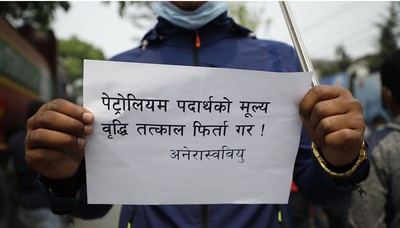 पेट्रोलियम पदार्थको मूल्य
वृद्धि तत्काल फिर्ता गर !
अनेरास्ववियु